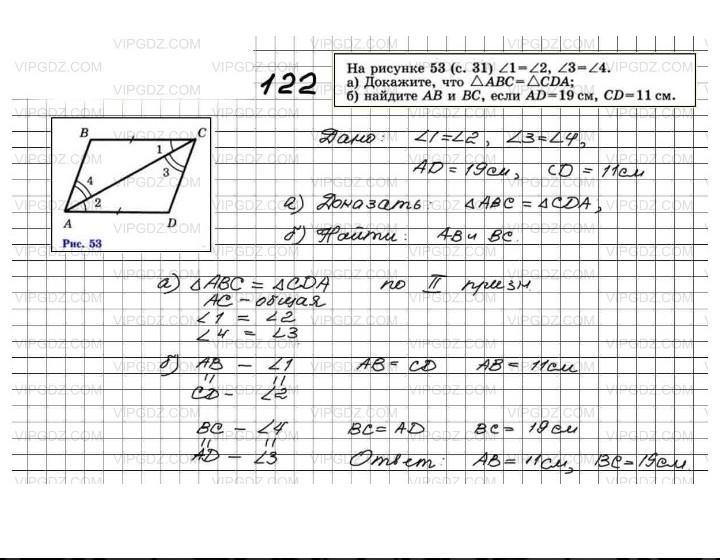 122
На рисунке 53 (с. 31) ∠1=∠2, ∠3=∠4.
а) Докажите, что △ABC=△CDA;
б) найдите AB и BC, если AD=19 см, CD=11 см.
B C
1
3
4
2
A D
Рис. 53
Дано: ∠1=∠2, ∠3=∠4,
AD = 19см, CD = 11см
а) Доказать: △ABC = △CDA,
б) Найти: AB и BC.
а) △ABC = △CDA по II призн
AC - общая
∠1 = ∠2
∠4 = ∠3
б) AB — ∠1 AB = CD AB = 11см
" "
CD - ∠2
BC - ∠4 BC = AD BC = 19см
" "
AD - ∠3 Ответ: AB = 11см, BC = 19см
VIPGDZ.COM